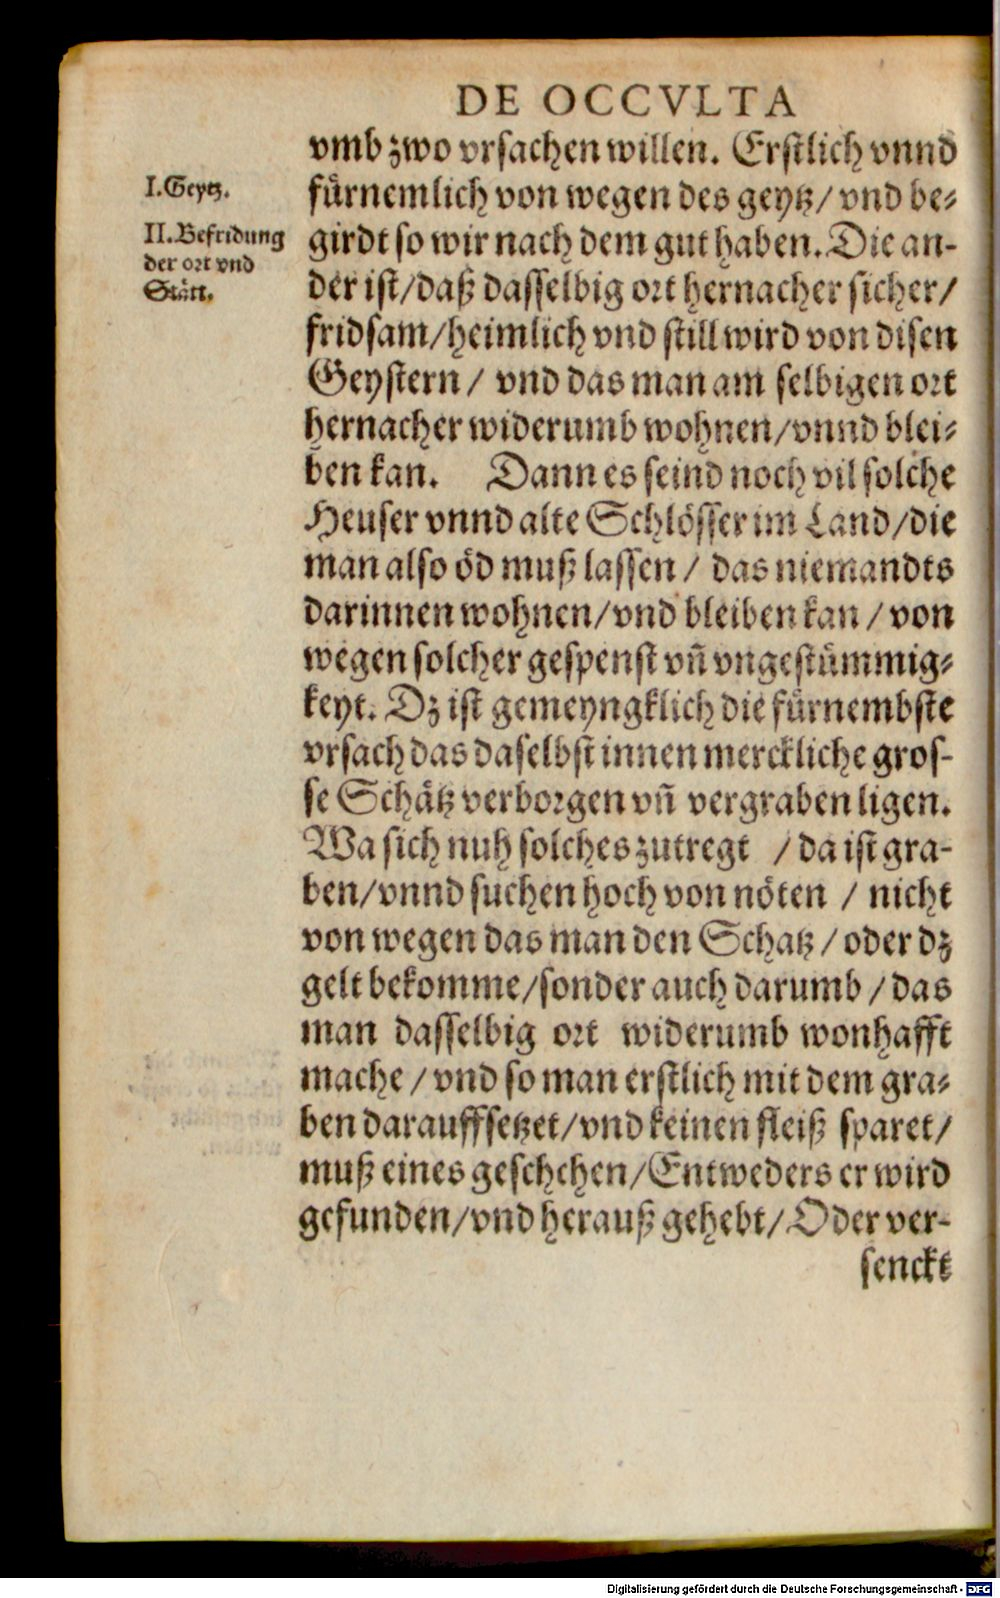 DE OCCVLTA
vmb zwo vrsachen willen. Erstlich vnnd
I. Geytz.
fürnemlich von wegen des geytz/ vnd be⸗
II. Befridung
der ort vnd
Stätt.
girdt so wir nach dem gut haben. Die an-
der ist/daß dasselbig ort hernacher sicher/
fridsam/heimlich vnd still wird von disen
Geystern/ vnd das man am selbigen ort
hernacher widerumb wohnen/vnnd blei⸗
ben kan. Dann es seind noch vil solche
Heuser vnnd alte Schlösser im Land/die
man also öd muß lassen/ das niemandts
darinnen wohnen/vnd bleiben kan/ von
wegen solcher gespenst vñ vngestümmig⸗
keyt. Dz ist gemeyngklich die fürnembste
vrsach das daselbst innen merckliche gros-
se Schätz verborgen vñ vergraben ligen.
Wa sich nuh solches zutregt / da ist gra-
ben/vnnd suchen hoch von nöten / nicht
von wegen das man den Schatz/ oder dz
gelt bekomme/sonder auch darumb/ das
man dasselbig ort widerumb wonhafft
mache/ vnd so man erstlich mit dem gra⸗
ben darauffsetzet/vnd keinen fleiß sparet/
muß eines geschehen/Entweders er wird
gefunden/vnd herauß gehebt/Oder ver-
senckt
Digitalisierung gefördert durch die Deutsche Forschungsgemeinschaft - DFG